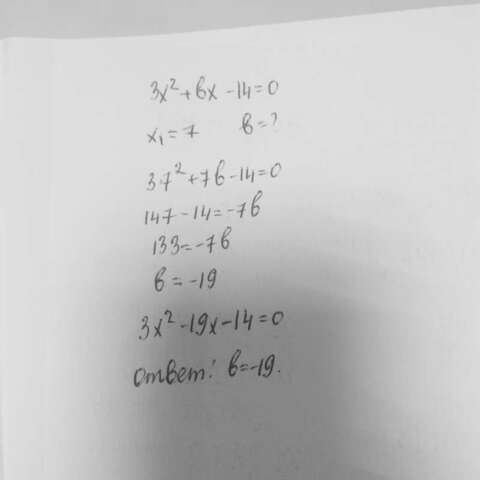 3x² + bx - 14 = 0
x₁ = 7 b = ?
3·7² + 7b - 14 = 0
147 - 14 = -7b
133 = -7b
b = -19
3x² - 19x - 14 = 0
ответ: b = -19.